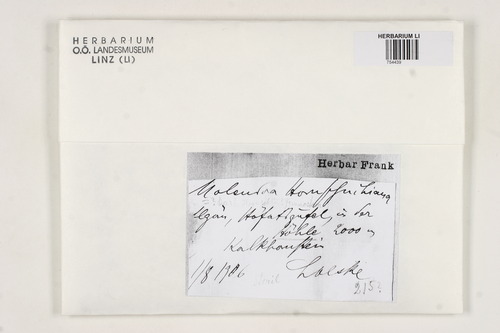 HERBARIUM
O.Ö. LANDESMUSEUM
LINZ (LI)
HERBARIUM LI
Herbar Frank
Molendoa Hornschuchiana
Höfatsgufel, in der
Höhle 2000 m
1/8 1906 Loeske